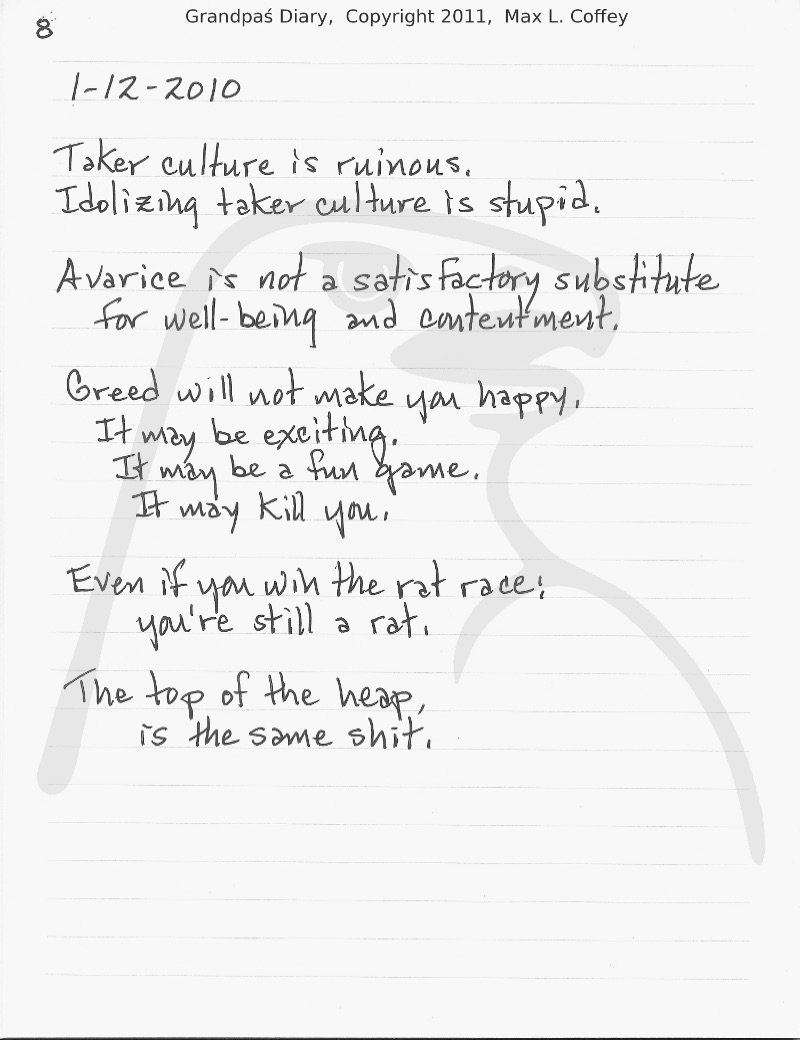 Grandpaś Diary, Copyright 2011, Max L. Coffey
8
1-12-2010
Taker culture is ruinous.
Idolizing taker culture is stupid.
Avarice is not a satisfactory substitute
for well-being and contentment.
Greed will not make you happy.
It may be exciting.
It may be a fun game.
It may kill you.
Even if you win the rat race;
you're still a rat.
The top of the heap,
is the same shit.